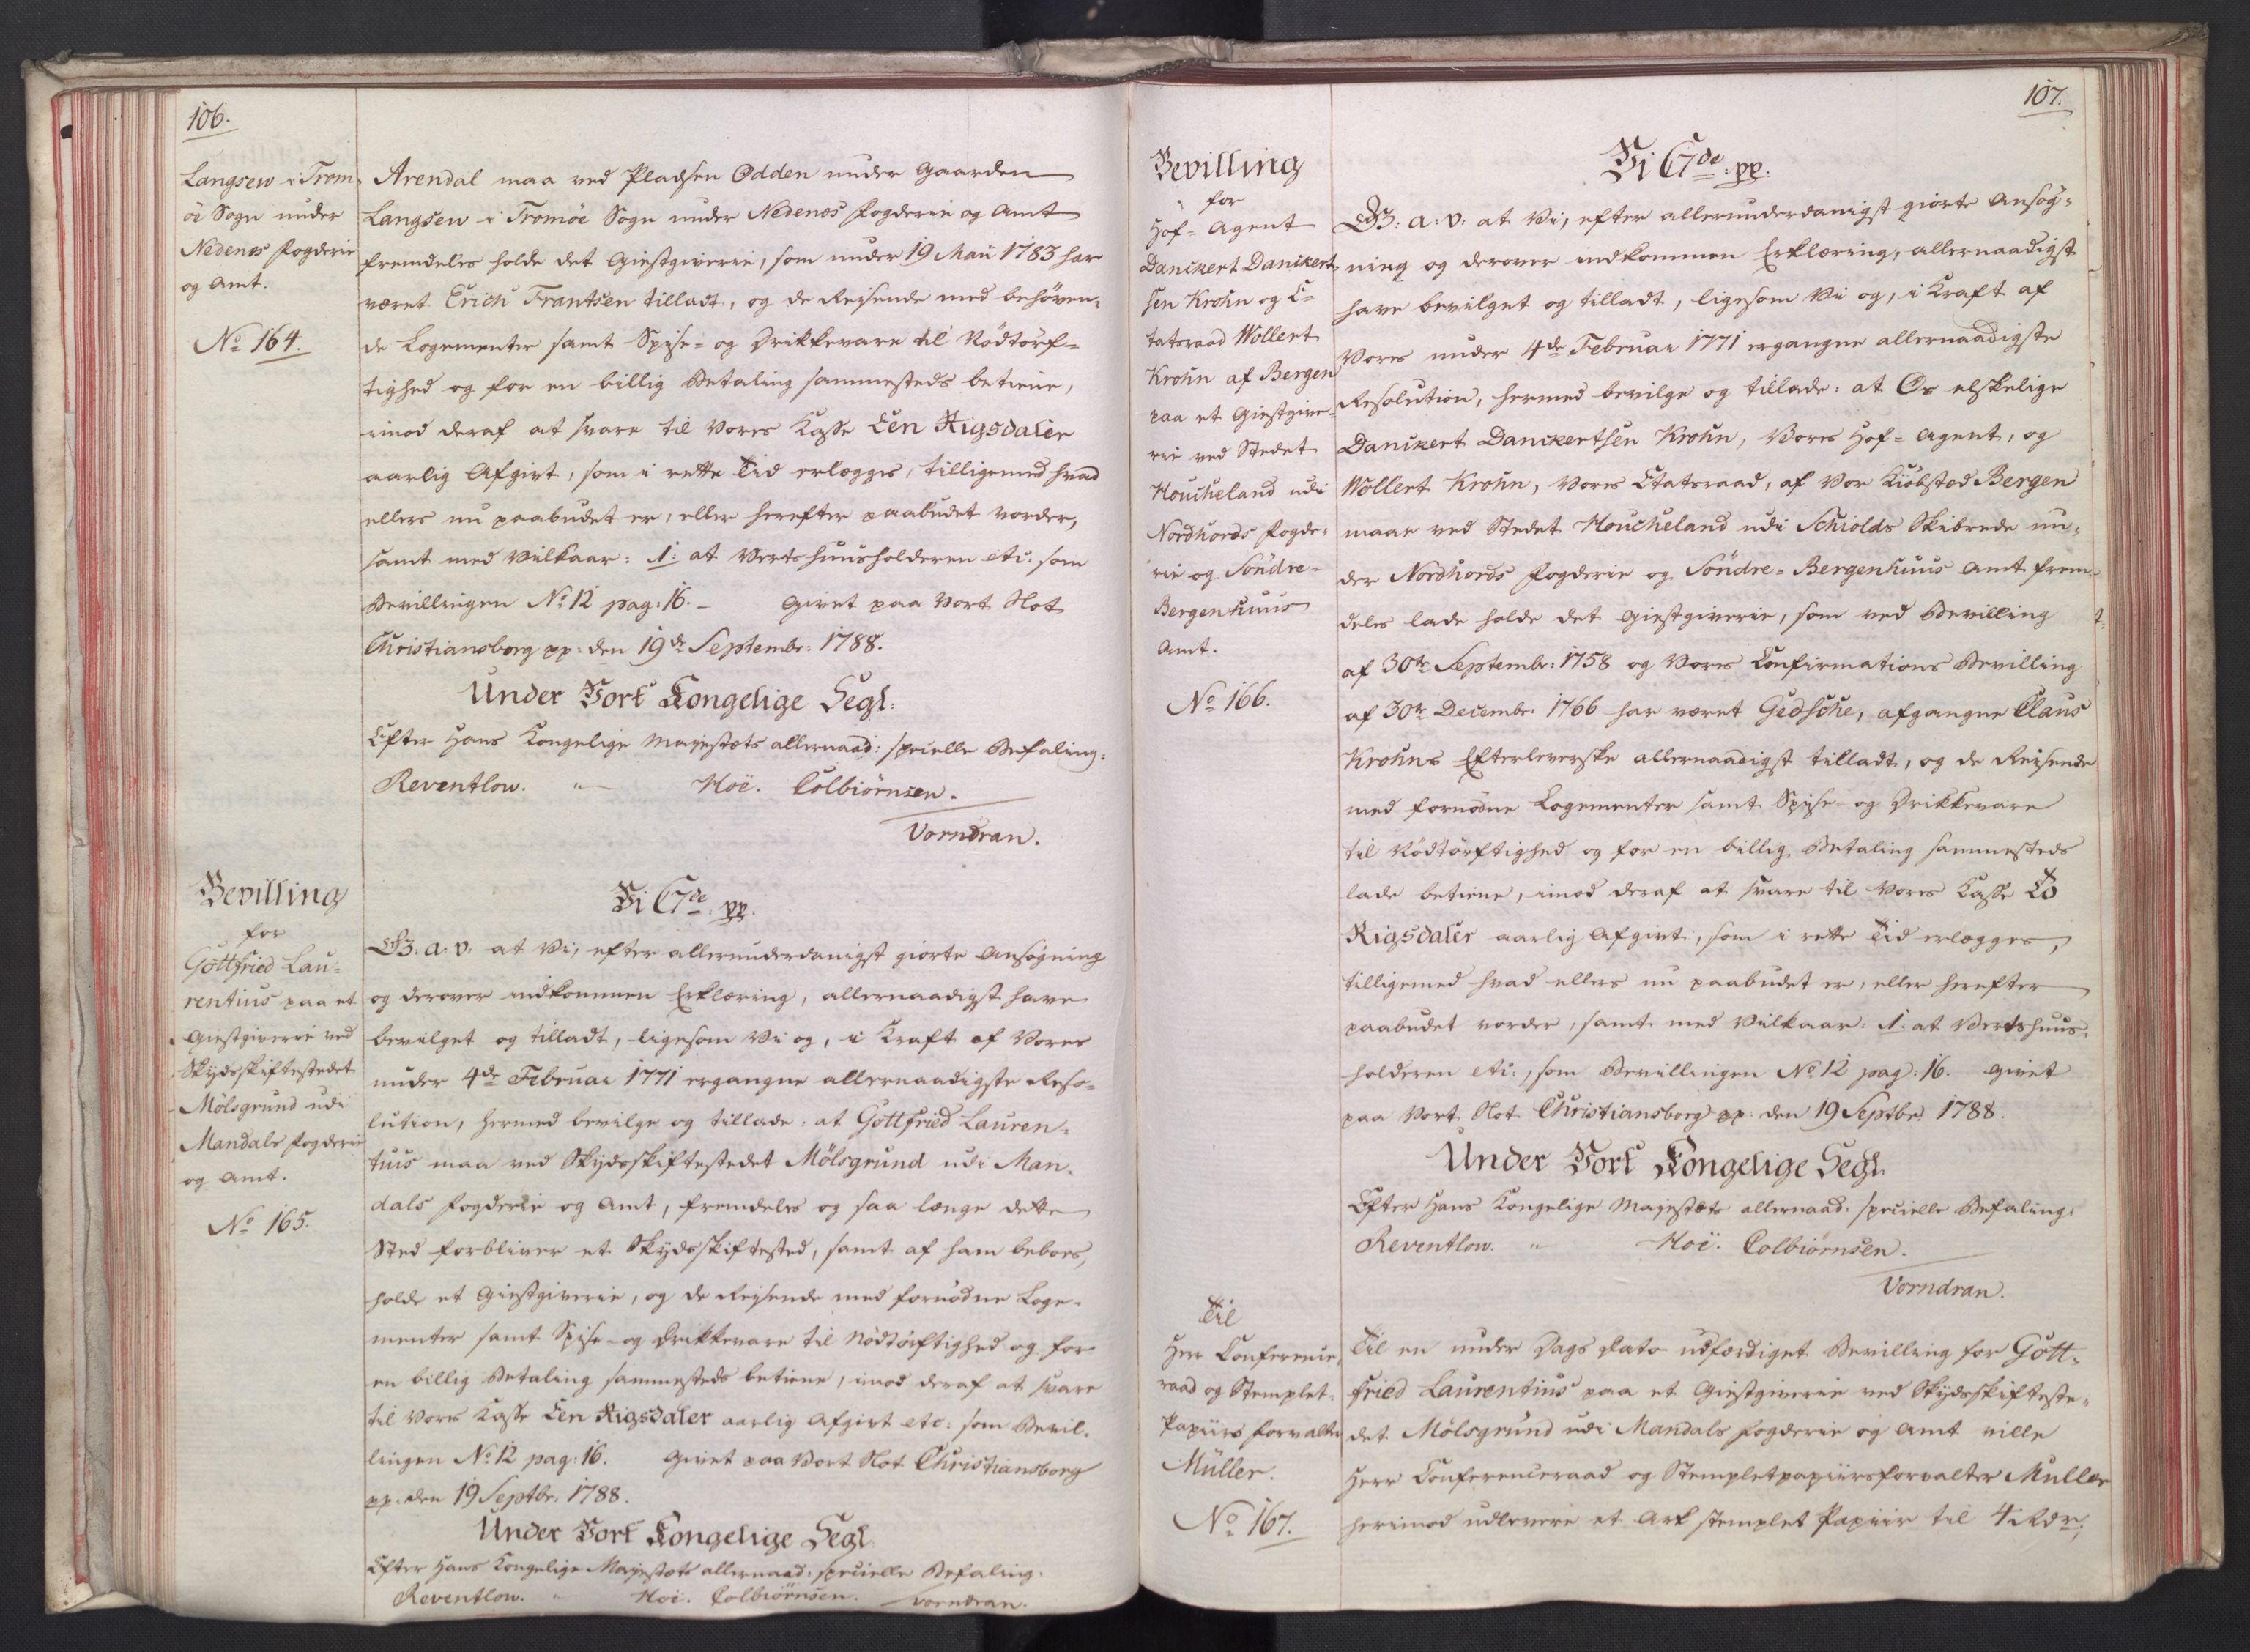 106.
Langsew i Trom-
öe Sogn under
Nedenes Fogderie
og Amt.
No 164.
Arendal maa ved Pladsen Odden under Gaarden
Langsew i Tromöe Sogn under Nedenes Fogderie og Amt
fremdeles holde det Giestgiverie, som under 19 Maii 1783 har
været Erich Frantsen tilladt, og de Reisende med behöven-
de Logementer samt Spise- og Drikkevare til Nödtörf-
tighed og for en billig Betaling sammesteds betiene,
imod deraf at svare til Vores Kasse Een Rigsdaler
aarlig Afgivt, som i rette Tid erlægges, tilligemed hvad
ellers nu paabudet er, eller herefter paabudet vorder,
samt med Vilkaar: 1: at Vertshuusholderen etc: som
Bevillingen No 12 pag: 16. – Givet paa Vort Slot
Christiansborg pp: den 19de Septembr: 1788.
Under Vort Kongelige Segl:
Efter Hans Kongelige Majestæts allernaad: specielle Befaling:
Reventlow. Hoë. Colbiörnsen.
Vorndran.
Bevilling
for
Gottfried Lau-
rentius paa et
Giestgiverie ved
Skydsskiftestedet
Mölsgrund udi
Mandals Fogderie
og Amt.
No 165.
Vi C7de: pp.
G: A: V: at Vi, efter allerunderdanigst giorte Ansögning
og derover indkommen Erklæring, allernaadigst have
bevilget og tilladt, ligesom Vi og, i Kraft af Vores
under 4de Februar 1771 ergangne allernaadigste Reso-
lution, hermed bevilge og tillade: at Gottfried Lauren-
tius maa ved Skydsskiftestedet Mölsgrund udi Man-
dals Fogderie og Amt, fremdeles og saa længe dette
Sted forbliver et Skydsskiftested, samt af ham beboes,
holde et Giestgiverie, og de Reysende med fornödne Loge-
menter samt Spise- og Drikkevare til Nödtörftighed og for
en billig Betaling sammesteds betiene, imod deraf at svare
til Vores Kasse Een Rigsdaler aarlig Afgivt etc: som Bevil-
lingen No 12 pag: 16. Givet paa Vort Slot Christiansborg
pp: den 19 Septbr: 1788.
Under Vort Kongelige Segl.
Efter Hans Kongelige Majestæts allernaad: specielle Befaling.
Reventlow. Hoë. Colbiörnsen. Vorndran.
107.
Bevilling
for
Hof-Agent
Danckert Danckert-
sen Krohn og E-
tatsraad Wollert
Krohn af Bergen
paa et Giestgive-
rie ved Stedet
Houcheland udi
Nordhords Fogde-
rie og Söndre-
Bergenhuus
Amt.
No 166.
Vi C7de: pp.
G: A: V: at Vi, efter allerunderdanigst giorte Ansög-
ning og derover indkommen Erklæring, allernaadigst
have bevilget og tilladt, ligesom Vi og, i Kraft af
Vores under 4de Februar 1771 ergangne allernaadigste
Resolution, hermed bevilge og tillade: at Os elskelige
Danckert Danckertsen Krohn, Vores Hof-Agent, og
Wollert Krohn, Vores Etatsraad, af Vor Kiöbsted Bergen
maae ved Stedet Houcheland udi Schiolds Skibrede un-
der Nordhords Fogderie og Söndre-Bergenhuus Amt frem-
deles lade holde det Giestgiverie, som ved Bevilling
af 30te Septembr: 1758 og Vores Confirmations Bevilling
af 30te Decembr: 1766 har været Gedsche, afgangne Claus
Krohns Efterleverske allernaadigst tilladt, og de Reisende
med fornödne Logementer samt Spise- og Drikkevare
til Nödtörftighed og for en billig Betaling sammesteds
lade betiene, imod deraf at svare til Vores Kasse To
Rigsdaler aarlig Afgivt, som i rette Tid erlægges,
tilligemed hvad ellers nu paabudet er, eller herefter
paabudet vorder, samt med Vilkaar: 1: at Vertshuus-
holderen etc:, som Bevillingen No 12 pag: 16. Givet
paa Vort Slot Christiansborg pp: den 19 Septbr: 1788.
Under Vort Kongelige Segl.
Efter Hans Kongelige Majestæts allernaad: specielle Befaling:
Reventlow. Hoë. Colbiörnsen.
Vorndran.
Til
Herr Conference-
raad og Stemplet-
Papiirs Forvalter
Müller.
No 167.
Til en under Dags Dato udfærdiget Bevilling for Gott-
fried Laurentius paa et Giestgiverie ved Skydsskifteste-
det Mölsgrund udi Mandals Fogderie og Amt ville
Herr Conferenceraad og Stempletpapiirsforvalter Müller
herimod udlevere et Ark stemplet Papiir til 4 Rdr,